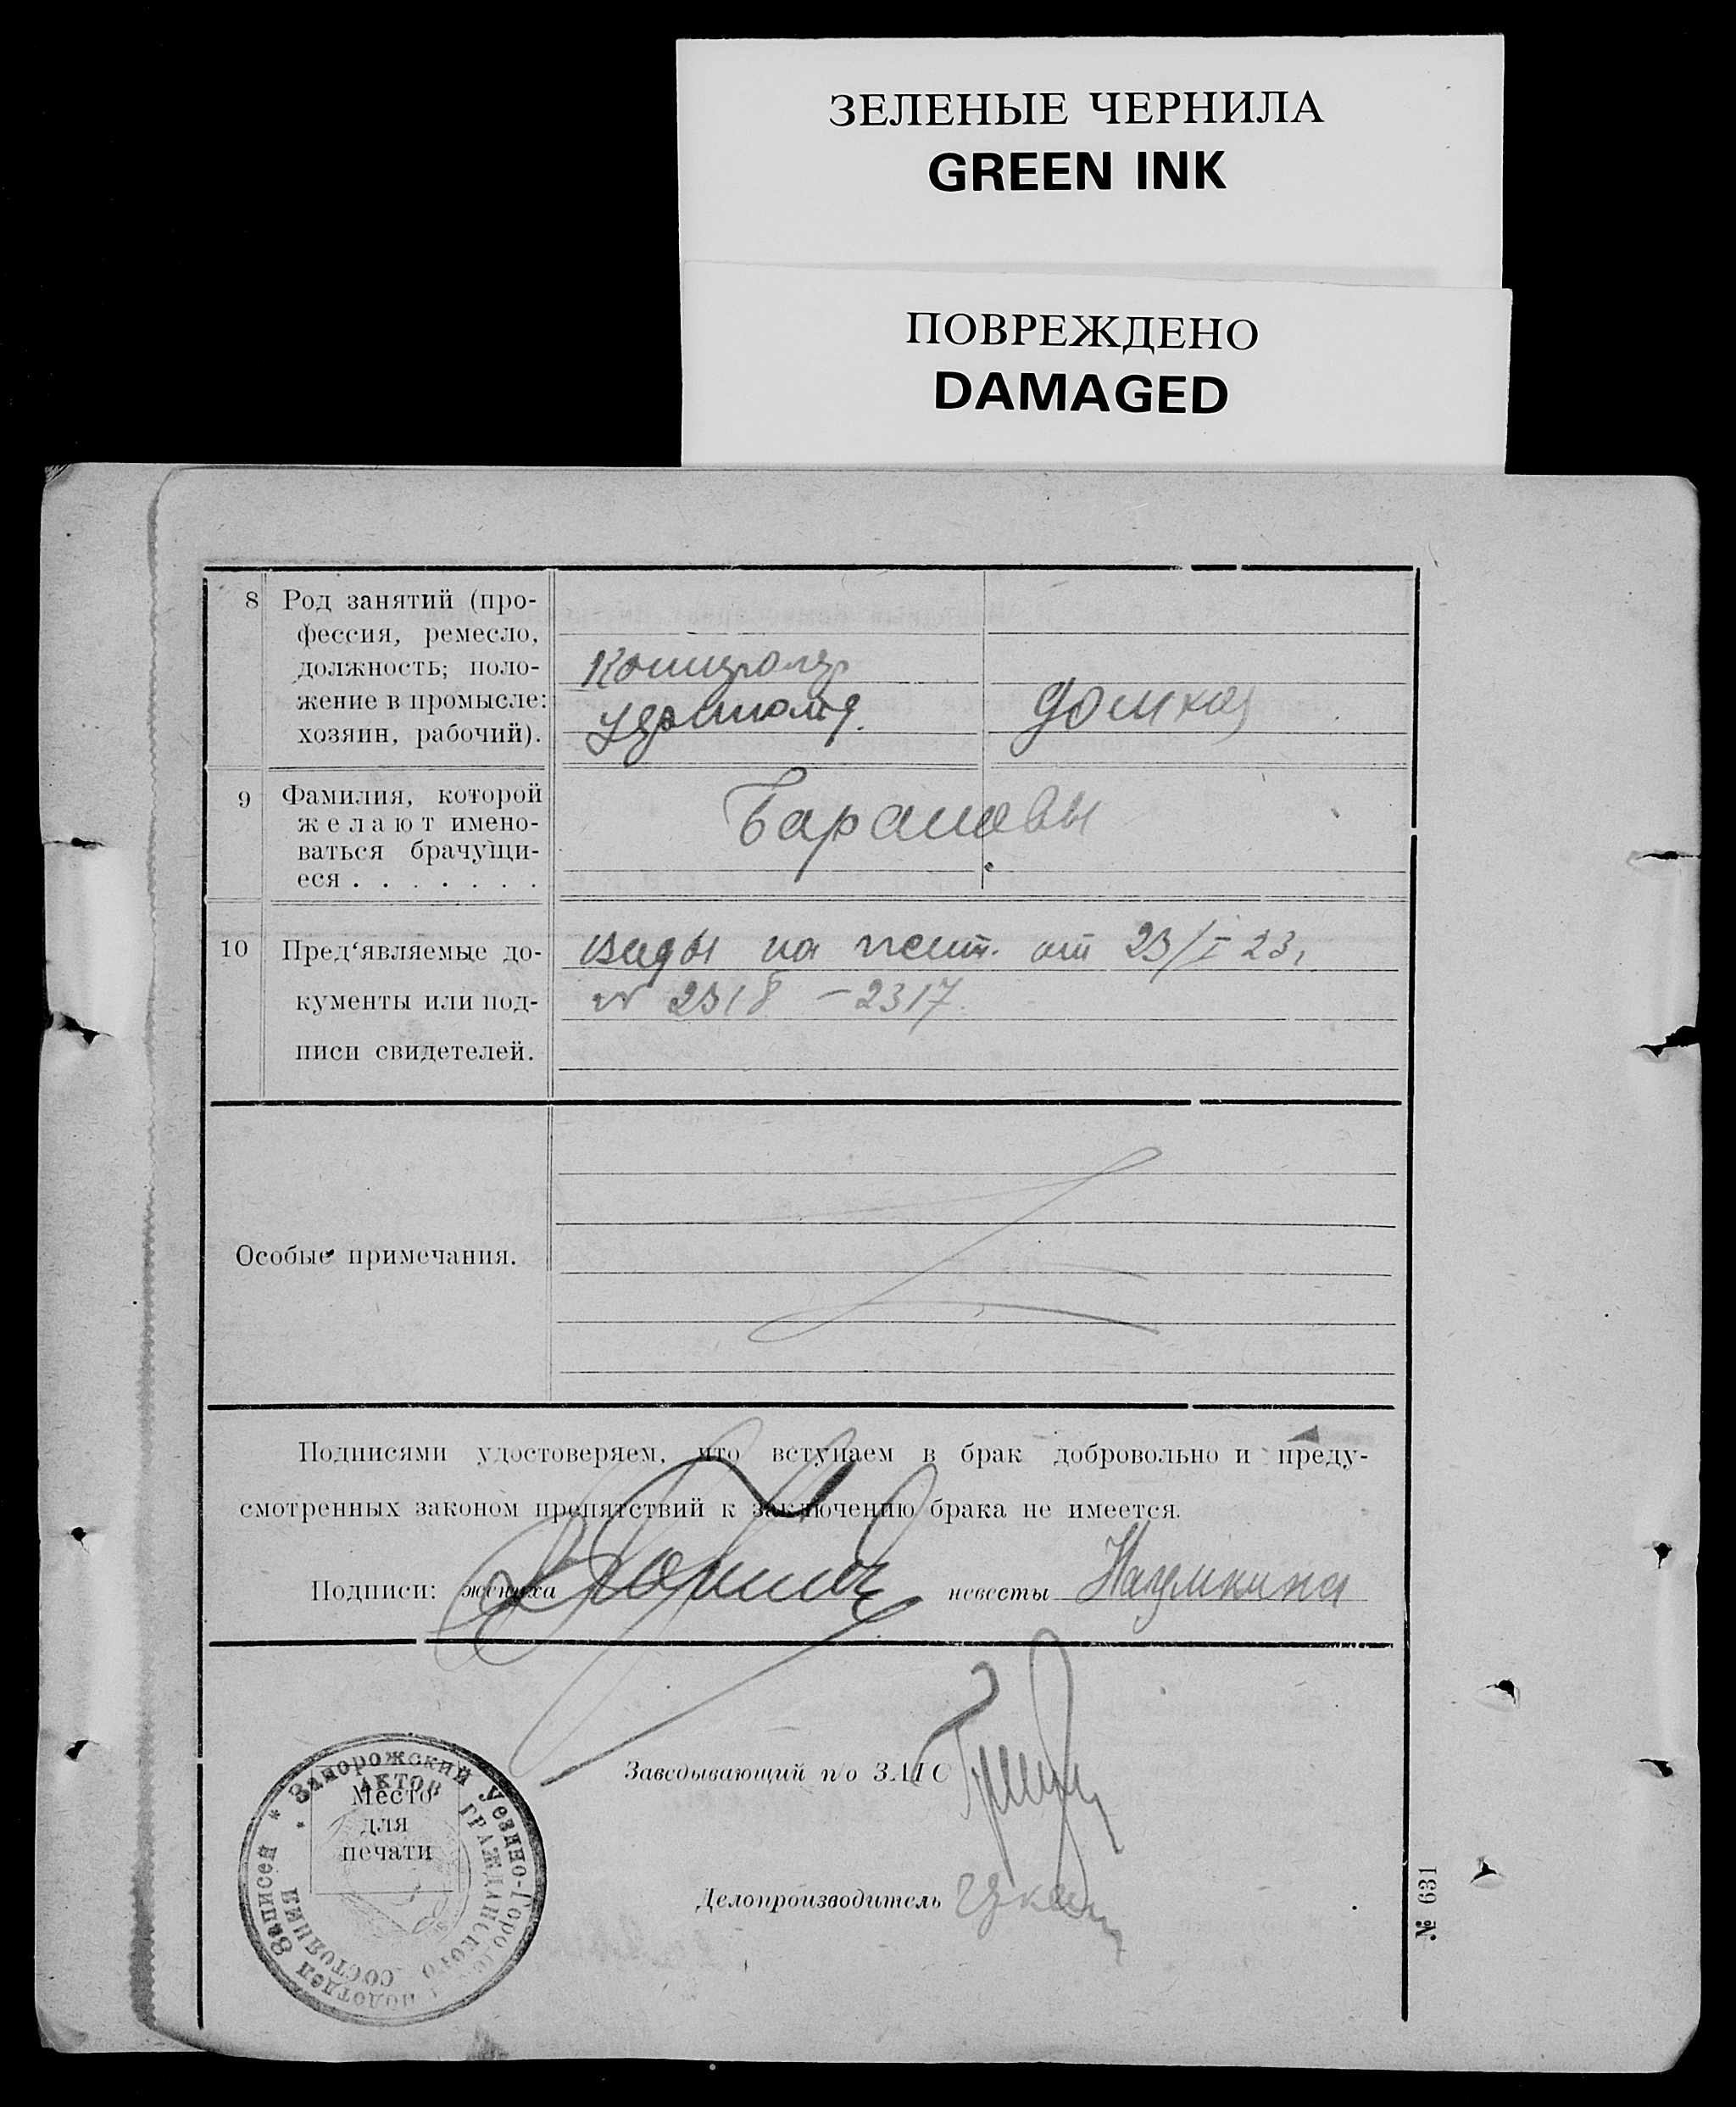 ЗЕЛЕНЫЕ ЧЕРНИЛА
GREEN INK
ПОВРЕЖДЕНО
DAMAGED
8 Род занятий (про-
фессия, ремесло,
должность; поло-
жение в промысле:
хозяин, рабочий).
домхоз
9 Фамилия, которой
желают имено-
ваться брачущи-
еся . . . . . . .
Барановы
10 Пред‘являемые до-
кументы или под-
писи свидетелей.
виды на жит. от 23/I 23,
№ 2318 – 2317
Особые примечания.
Подписями удостоверяем, что вступаем в брак добровольно и преду-
смотренных законом препятствий к заключению брака не имеется.
Подписи: жениха невесты Наумкина
Заведывающий п/о ЗАГС
Делопроизводитель
Место
для
печати
* Запорожский Уездно-Городской подотдел Записей
* АКТОВ ГРАЖДАНСКОГО СОСТОЯНИЯ
№ 631